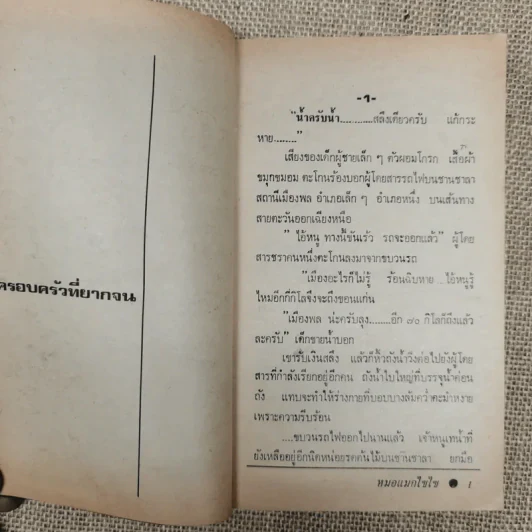 ครอบครัวที่ยากจน
-1-
"น้ำครับน้ำ...........สลึงเดียวครับ แก้กระ
หาย........"
เสียงของเด็กผู้ชายเล็ก ๆ ตัวผอมโกรก เสื้อผ้า
ขมุกขมอม ตะโกนร้องบอกผู้โดยสารรถไฟบนชานชาลา
สถานีเมืองพล อำเภอเล็ก ๆ อำเภอหนึ่ง บนเส้นทาง
สายตะวันออกเฉียงเหนือ
" ไอ้หนู ทางนี้ขันเร็ว รถจะออกแล้ว" ผู้โดย
สารชราคนหนึ่งตะโกนลงมาจากขบวนรถ
"เมืองอะไรก็ไม่รู้ ร้อนฉิบหาย ..ไอ้หนูรู้
ไหมอีกกี่กิโลจึงจะถึงขอนแก่น
"เมืองพล น่ะครับลุง........อีก ๗๐ กิโลก็ถึงแล้ว
ละครับ" เด็กขายน้ำบอก
เขารับเงินสลึง แล้วก็หิ้วถังน้ำวิ่งต่อไปยังผู้โดย
สารที่กำลังเรียกอยู่อีกคน ถังน้ำใบใหญ่ที่บรรจุน้ำค่อน
ถัง แทบจะทำให้ร่างกายที่บอบบางล้มคว่ำคะมำหงาย
เพราะความรีบร้อน
....ขบวนรถไฟออกไปนานแล้ว เจ้าหนูเทน้ำที่
ยังเหลืออยู่อีกนิดหน่อยรดต้นไม้บนชานชาลา ยกมือ
หมอแมกไซไซ ● 1